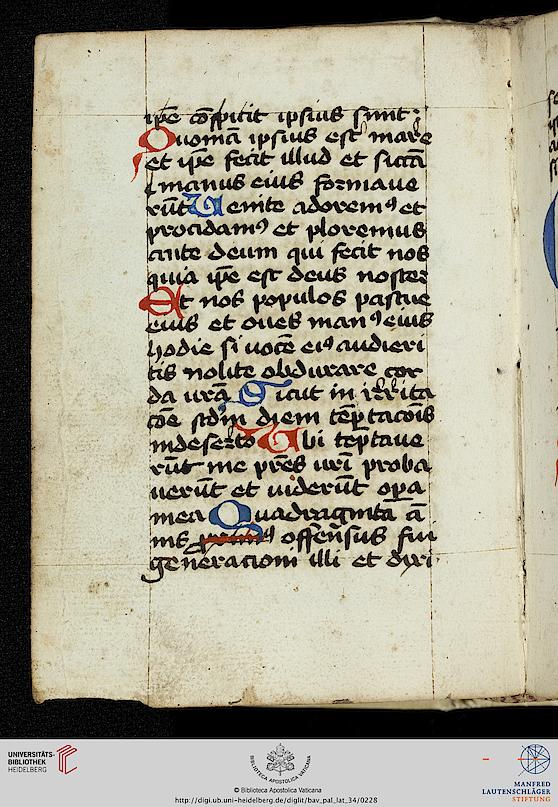 ip̄e cōsp̄itit ipsius sunt
Quoniā ipsius est mare
et ip̄e fecit illud et siccā
manus eius formaue
rūt Uenite adoremꝰ et
procidamꝰ et ploremus
ante deum qui fecit nos
quia ip̄e est deus noster
Et nos populos pascue
eius et oues manꝰ eius
hodie si uocē eiꝰ audieri
tis nolite obdurare cor
da urā Sicut in irrita
cōe scdm̄ diem tēptacōis
in deserto Ubi teptaue
rūt me pr̄es urī proba
uerūt et uiderūt oꝑa
mea Quadragintā ā
nis offensus fui
generacioni illi et dixi
UNIVERSITÄTS-
BIBLIOTHEK
HEIDELBERG
BIBLIOTHECA APOSTOLICA VATICANA
© Biblioteca Apostolica Vaticana
http://digi.ub.uni-heidelberg.de/diglit/bav_pal_lat_34/0228
MANFRED
LAUTENSCHLÄGER
STIFTUNG